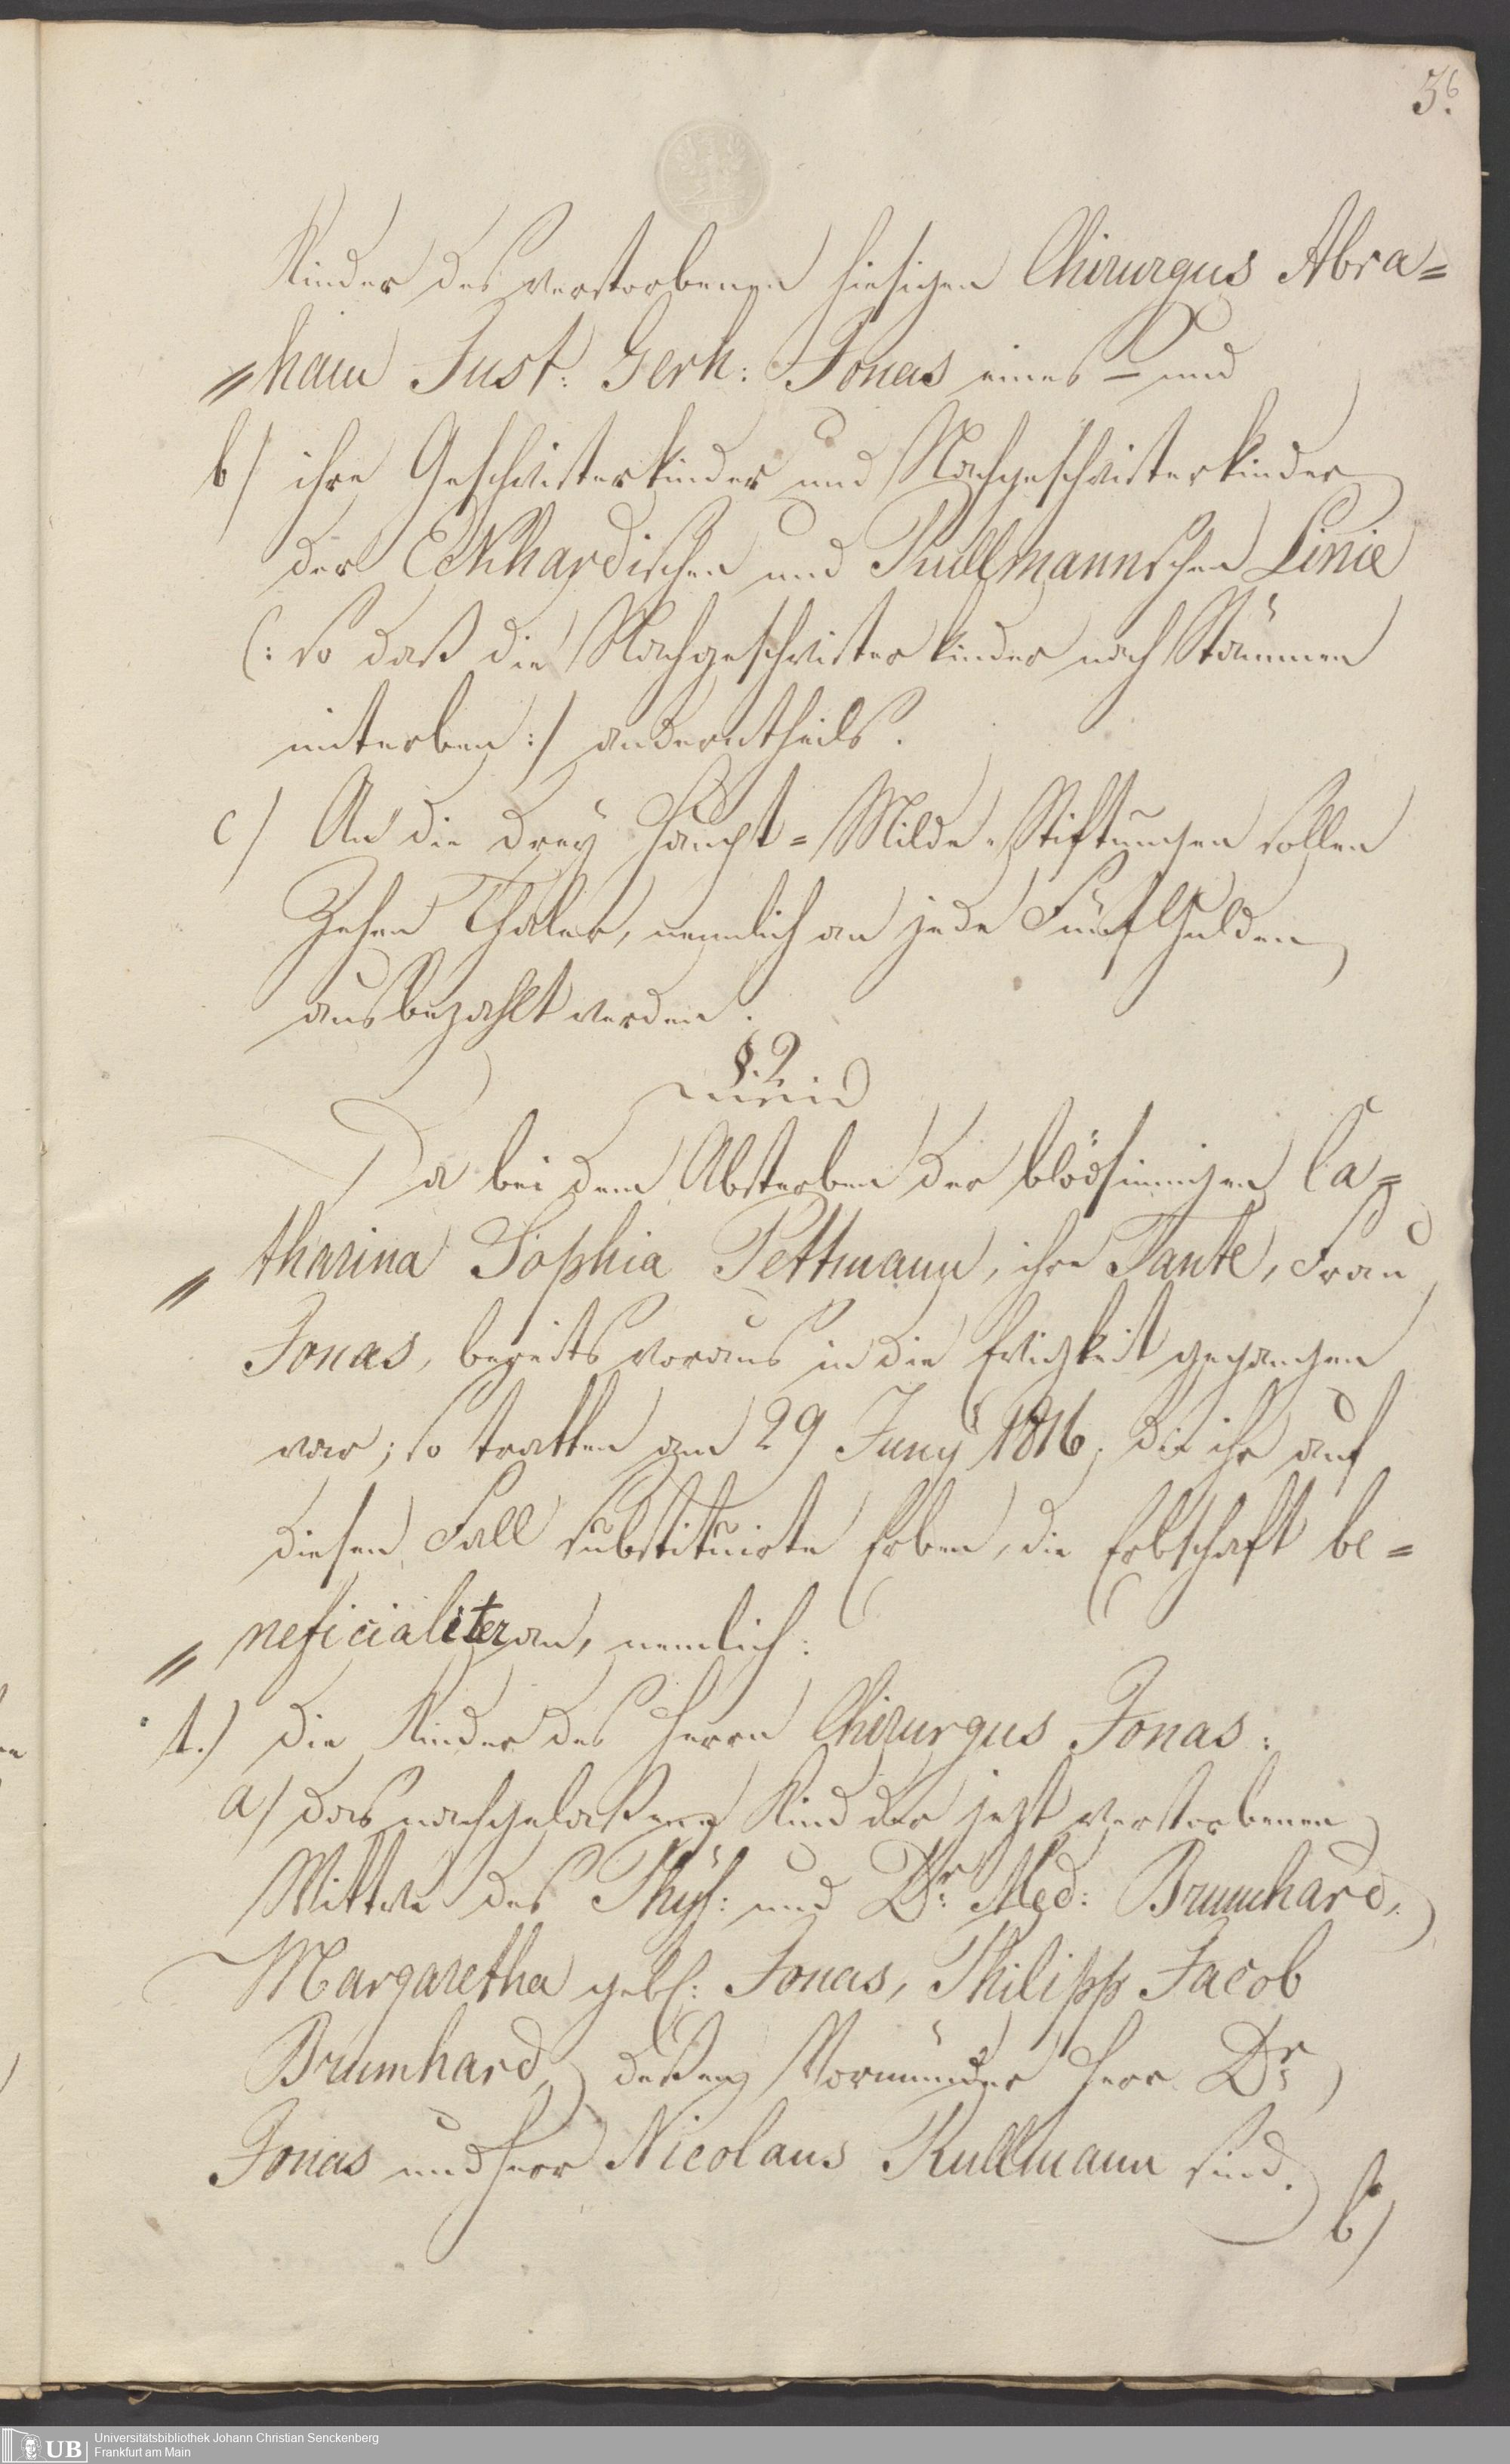 36.
Kinder des verstorbenen hiesigen Chirurgus Abra=
„ham Just: Gerh: Jonas eines – und
b/ ihre Geschwisterkinder und Nachgeschwisterkinder
der Eckhardischen und Kullmannschen Linie
(: so daß die Nachgeschwisterkinder nach Stämmen
miterben :/ anderntheils.
c/ An die drey Haupt=Milde=Stiftungen sollen
Zehen Thaler, nemlich an jede Fünf Gulden
ausbezahlt werden.
§. 2
Da bei dem Absterben der blödsinnigen Ca=
„tharina Sophia Pettmann, ihre Tante, Frau
Jonas, bereits voraus in die Ewigkeit gegangen
war; so tratten am 29 Juny 1816. die ihr auf
diesen Fall substituirte Erben, die Erbschaft be=
„neficialiter an, nemlich:
1.) die Kinder des Herrn Chirurgus Jonas:
a/ das nachgelaßene Kind der jezt verstorbenen
Wittwe des Phys: und Dr. Med: Brumhard,
Margaretha gebh: Jonas, Philipp Jacob
Brumhard, deßen Vormünder Herr Dr.
Jonas und Herr Nicolaus Kullmann sind.
b/
UB
Universitätsbibliothek Johann Christian Senckenberg
Frankfurt am Main